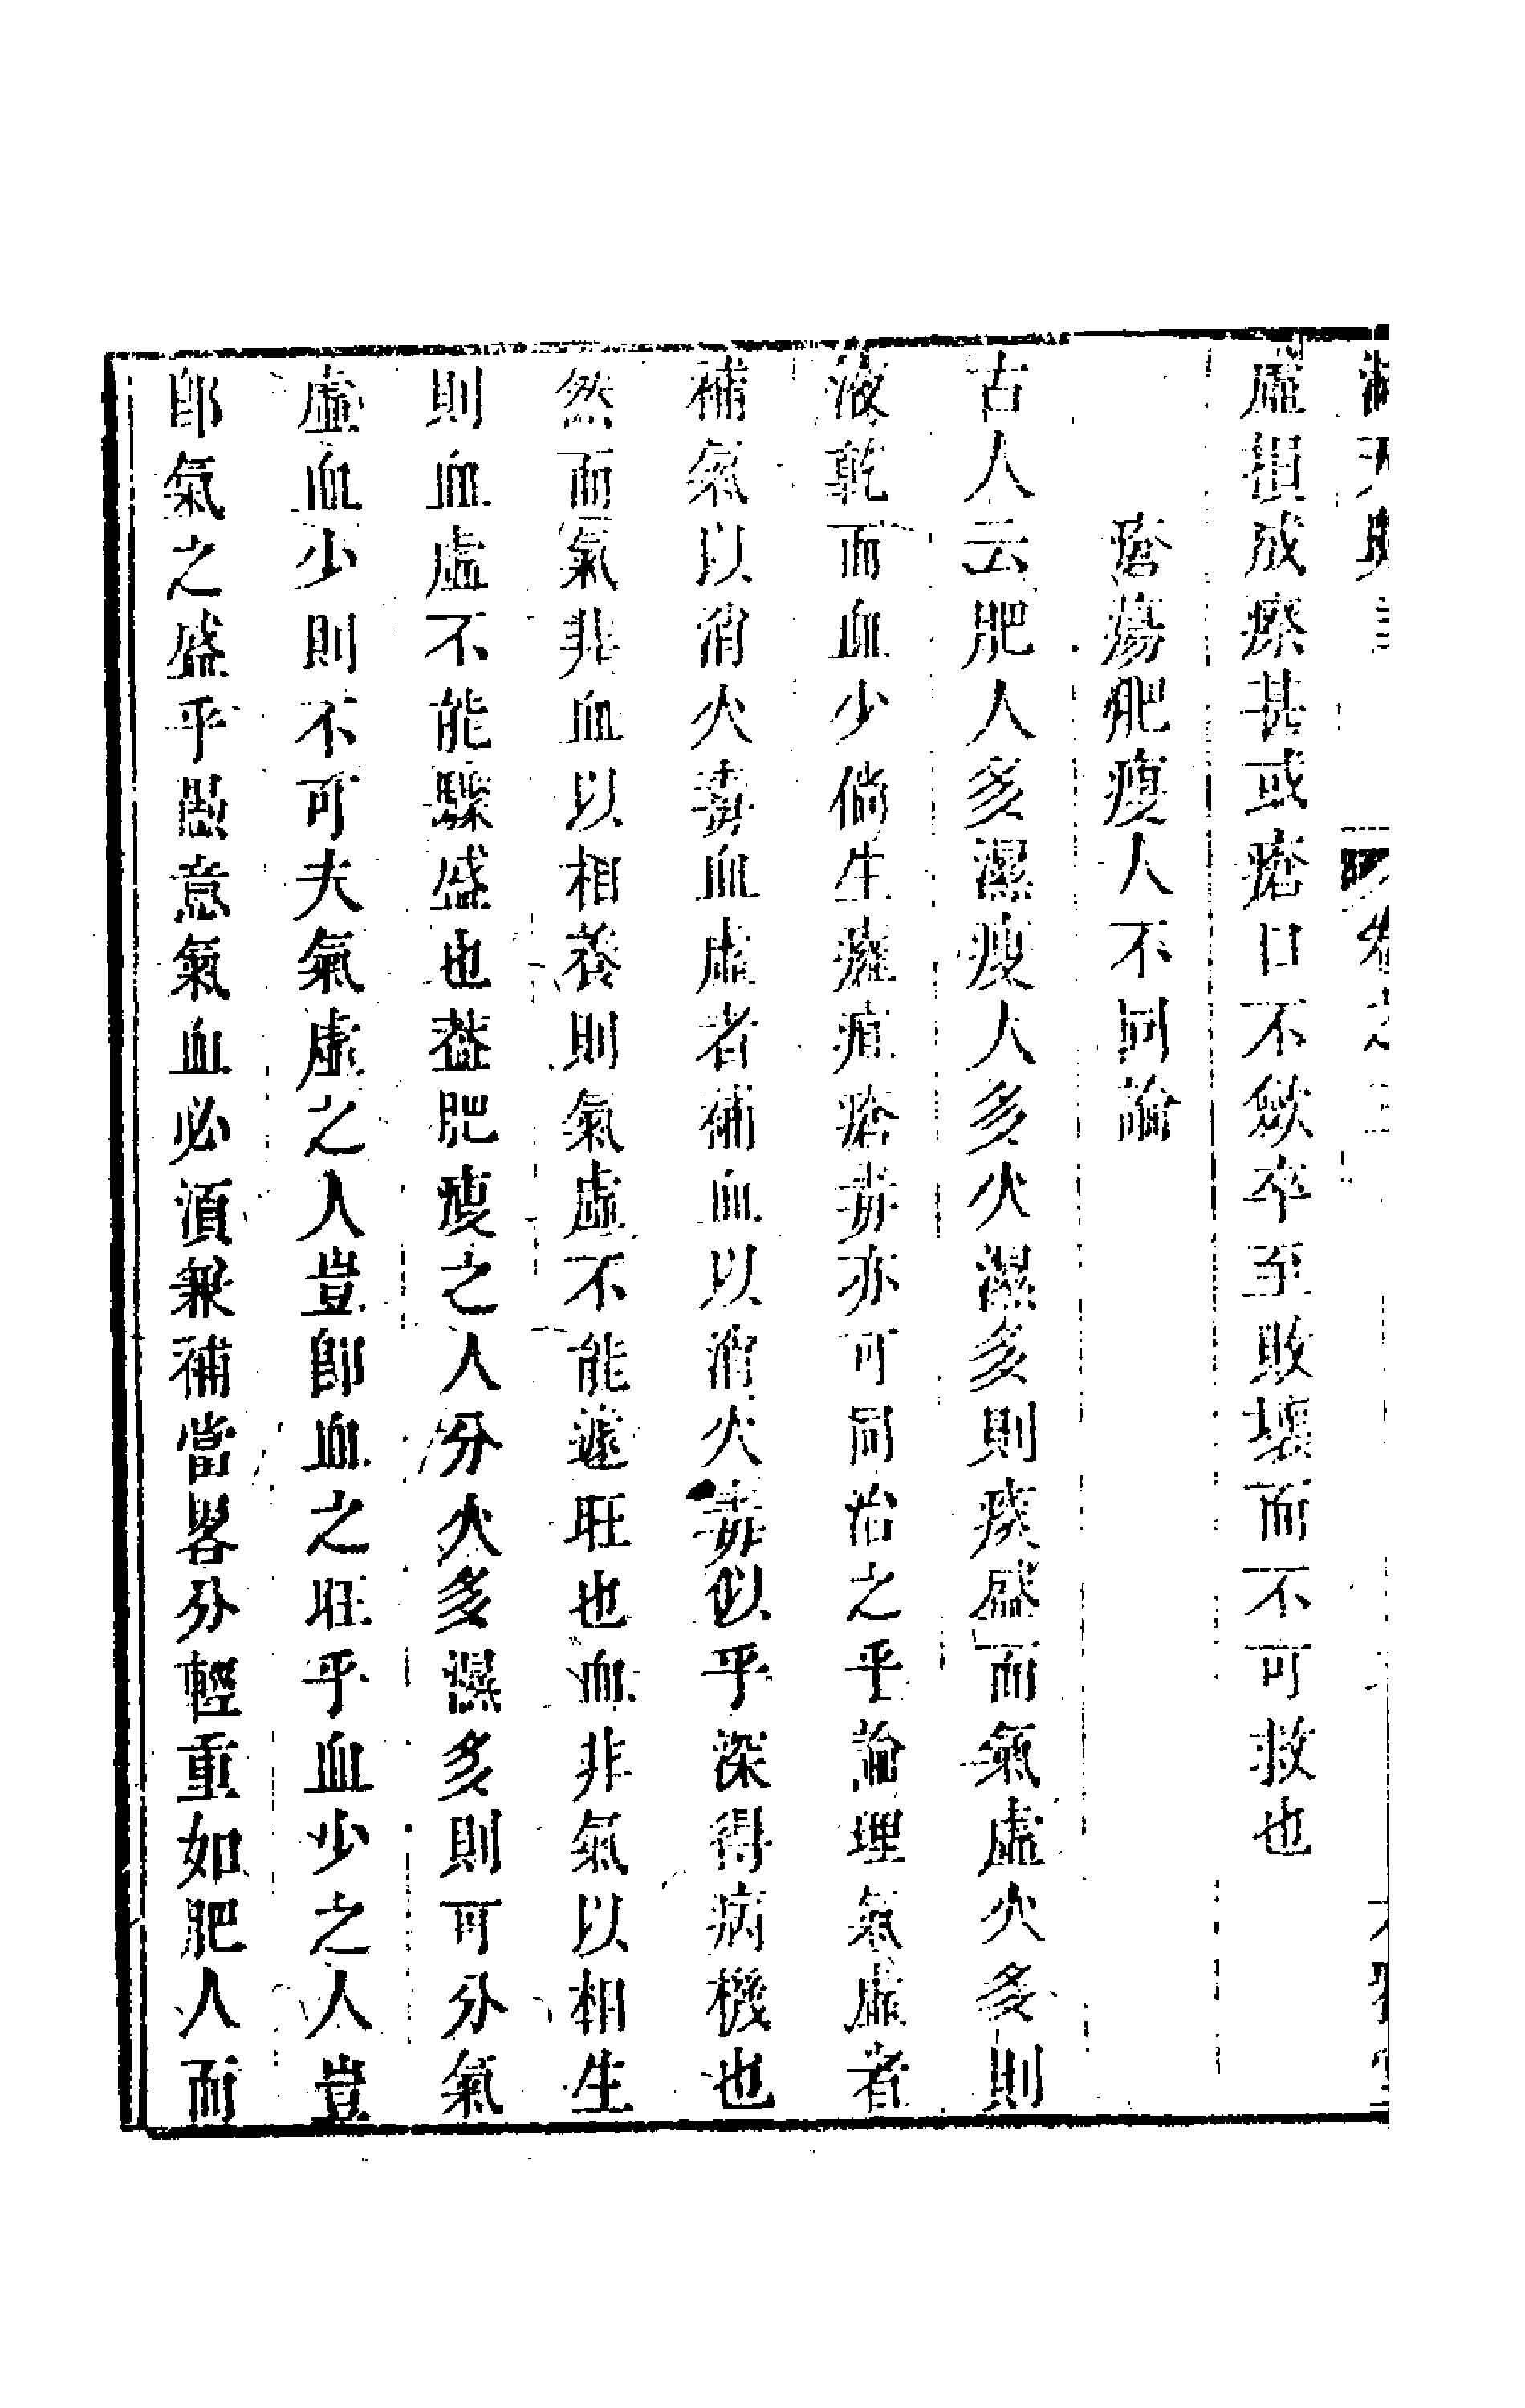 虛損成瘵甚或瘡口不斂卒至敗壞而不可救也
瘡瘍肥瘦人不同論
古人云肥人多濕瘦人多火濕多則痰盛而氣虛火多則
液乾而血少倘生癰疽瘡毒亦可同治之乎論理氣虛者
補氣以消火毒血虛者補血以消火毒似乎深得病機也
然而氣非血以相養則氣虛不能遽旺也血非氣以相生
則血虛不能驟盛也葢肥瘦之人分火多濕多則可分氣
虛血少則不可夫氣虛之人豈卽血之旺乎血少之人豈
卽氣之盛乎愚意氣血必須兼補當畧分輕重如肥人而